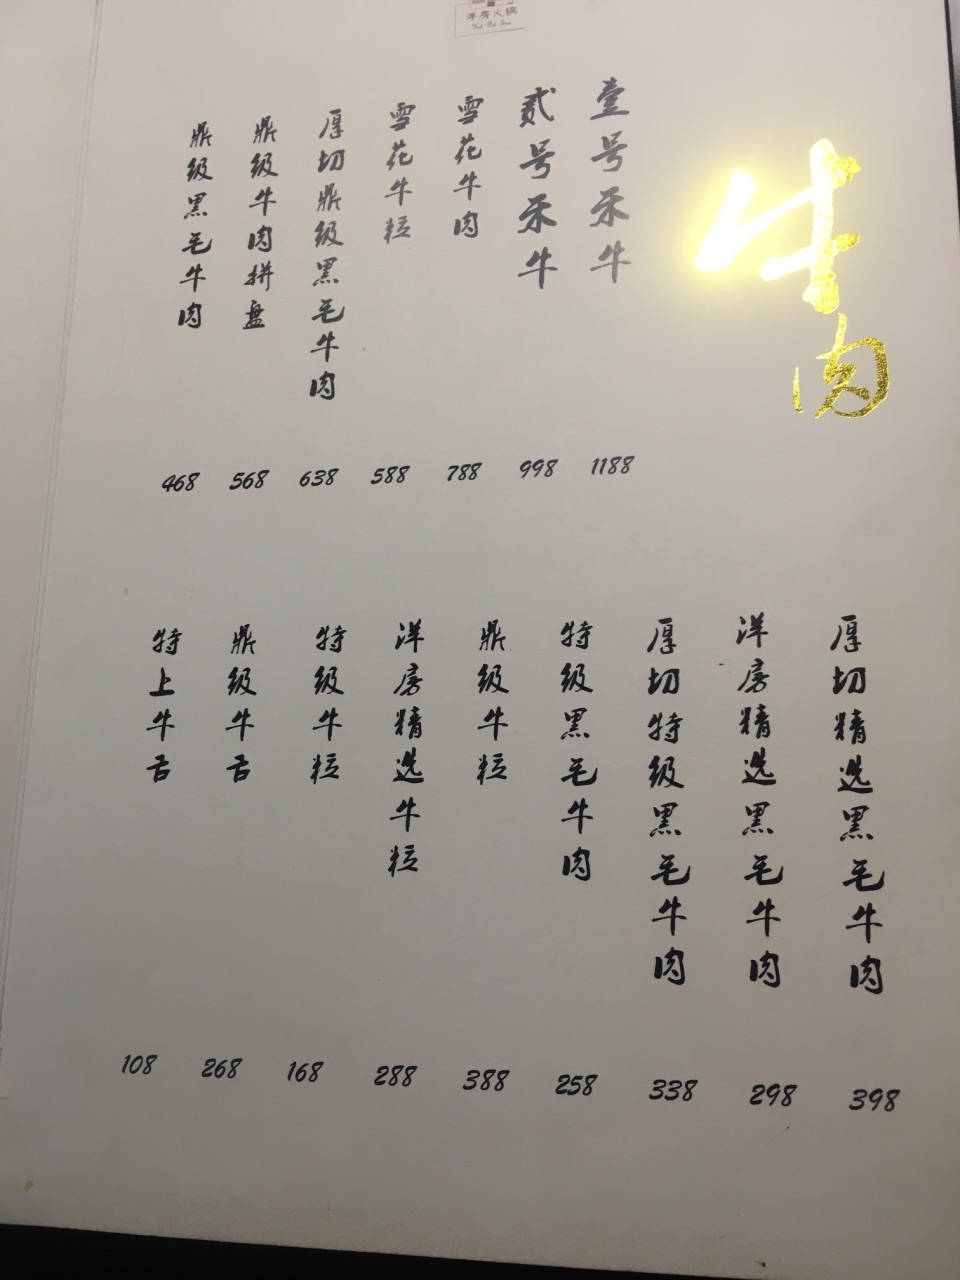 洋房火锅
牛肉
壹号禾牛
1188
贰号禾牛
998
雪花牛肉
788
雪花牛粒
588
厚切鼎级黑毛牛肉
638
鼎级牛肉拼盘
568
鼎级黑毛牛肉
468
厚切精选黑毛牛肉
398
洋房精选黑毛牛肉
298
厚切特级黑毛牛肉
338
特级黑毛牛肉
258
鼎级牛粒
388
洋房精选牛粒
288
特级牛粒
168
鼎级牛舌
268
特上牛舌
108